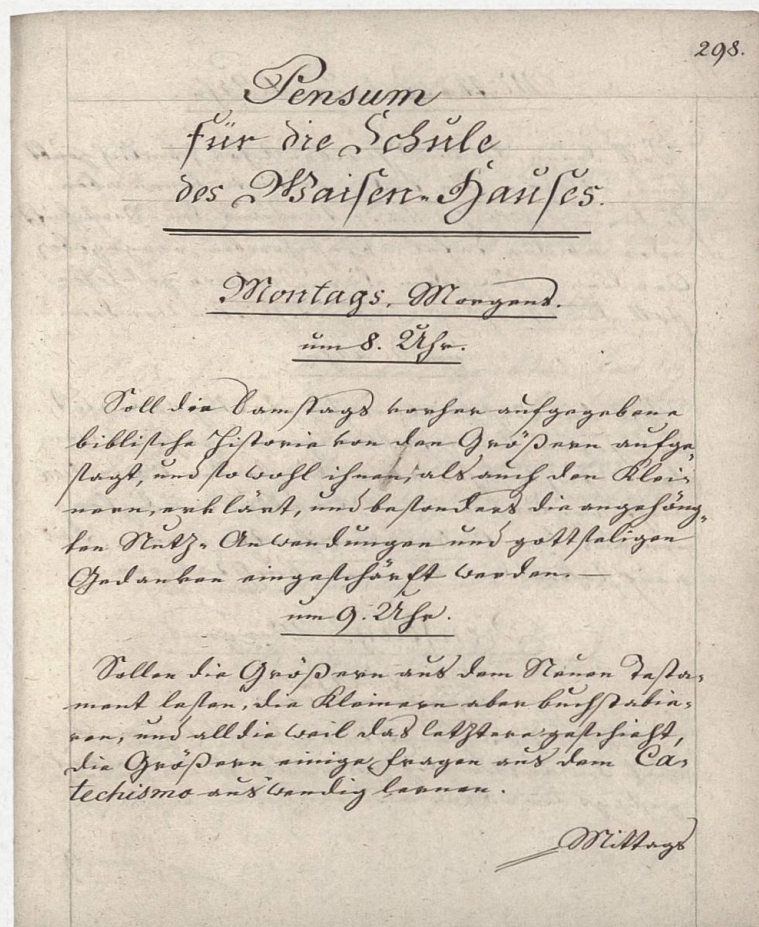 298.
Pensum
für die Schule
des Waisen-Hauses.
Montags, Morgens.
um 8. Uhr.
Soll die Samstags vorher aufgegebene
biblische Historie von den Größern aufge-
sagt, und sowohl ihnen, als auch den Klei-
nern, erklärt, und besonders die angehäng-
ten Nutz-Anwendungen und gottseligen
Gedanken eingeschärft werden. —
um 9. Uhr.
Sollen die Größern aus dem Neuen Testa-
ment lesen, die Kleinern aber buchstabie-
ren, und alldieweil das letztere geschieht,
die Größern einige Fragen aus dem Ca-
techismo auswendig lernen.
Mittags